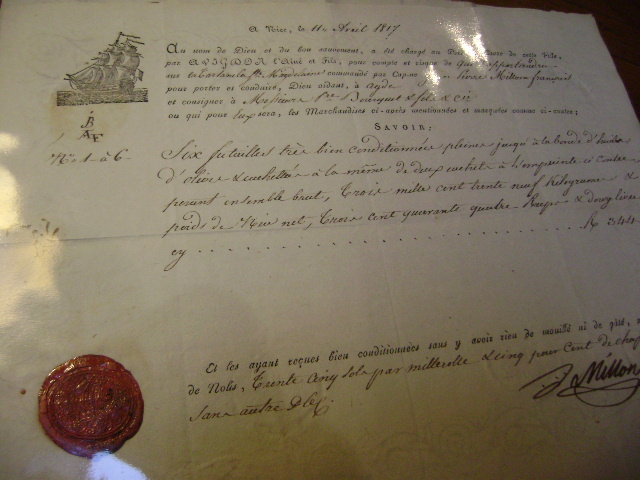 A Nice, le 11 Avril 1817
Au nom de Dieu et du bon sauvement, a été chargé au Port de cette Ville,
par AVIGDOR l'Ainé et Fils, pour compte et risque de qui appartiendra
sur commandé par Capne Millon français
pour porter et conduire, Dieu aidant, à Agde
et consigner à Messieurs Bourguet & fils & Cie
ou qui pour eux sera, les Marchandises ci-après mentionnées et marquées comme ci-contre;
SAVOIR:
B
AF
Nos 1 à 6
Six futailles très bien conditionnées pleines jusqu'à la bonde d'huile
d'olive & cachetées à la même de deux cachets à l'empreinte ci contre
pesant ensemble brut, Trois mille cent trente neuf Kilogrammes &
poids de Nice net, Trois cent quarante quatre Rups & douze livres
cy . . . . . . . . . . R 344
Et les ayant reçues bien conditionnées sans y avoir rien de mouillé ni de gâté,
de Nolis, Trente cinq sols par millerolle & cinq pour cent de chap
sans autre
J. Millon